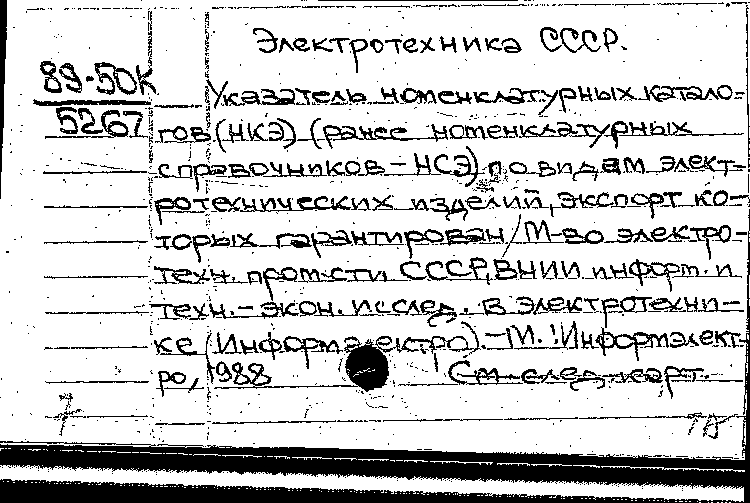 Электротехника СССР.
89-50К
5267
Указатель номенклатурных катало-
гов (НКЭ) (ранее номенклатурных
справочников - НСЭ) по видам элект-
ротехнических изделий, экспорт ко-
торых гарантирован / М-во электро-
техн. пром-сти СССР, ВНИИ информ. и
техн.-экон. исслед. в электротехни-
ке (Информэлектро). - М.: Информэлект-
ро, 1988
См. след. карт.
7